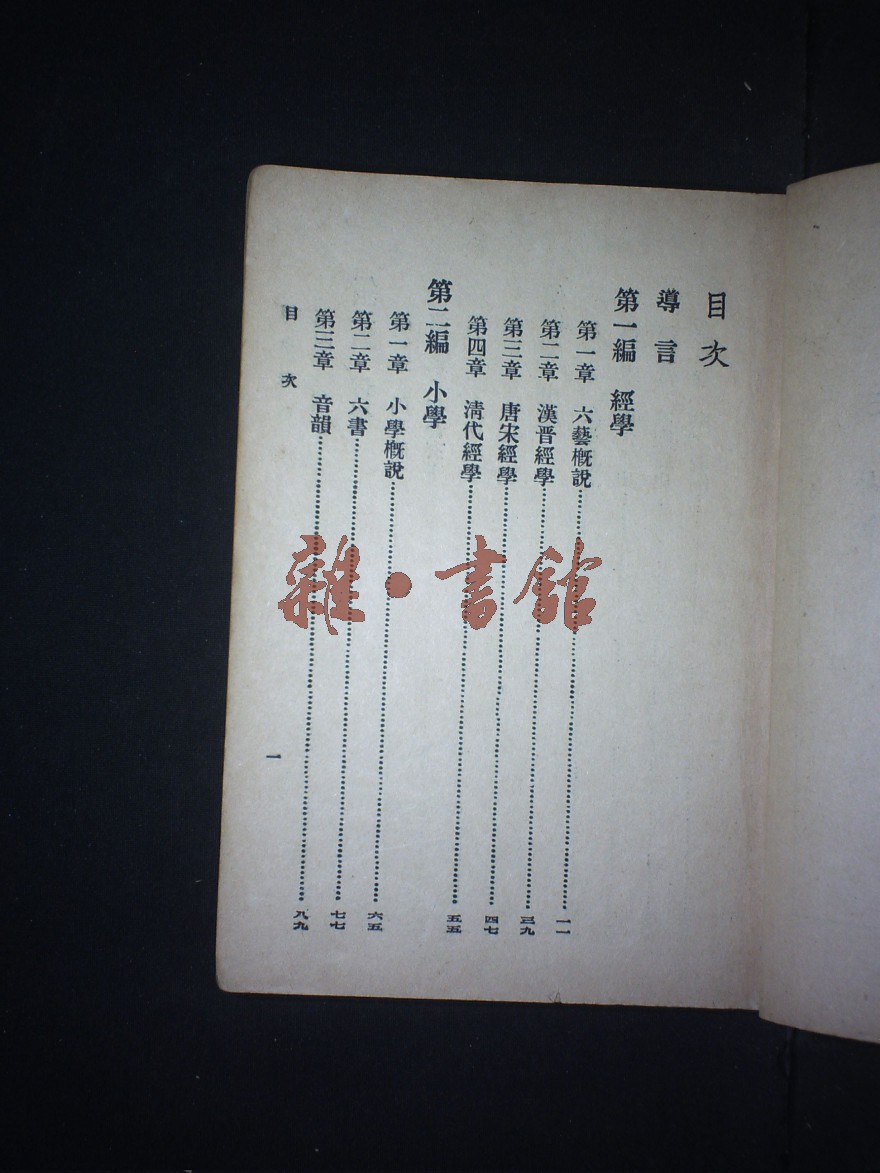 目次
導言
第一編 經學
第一章 六藝概說⋯⋯一一
第二章 漢晉經學⋯⋯三九
第三章 唐宋經學⋯⋯四七
第四章 清代經學⋯⋯五五
第二編 小學
第一章 小學概說⋯⋯六五
第二章 六書⋯⋯七七
第三章 音韻⋯⋯八九
目次 一
雜·書館